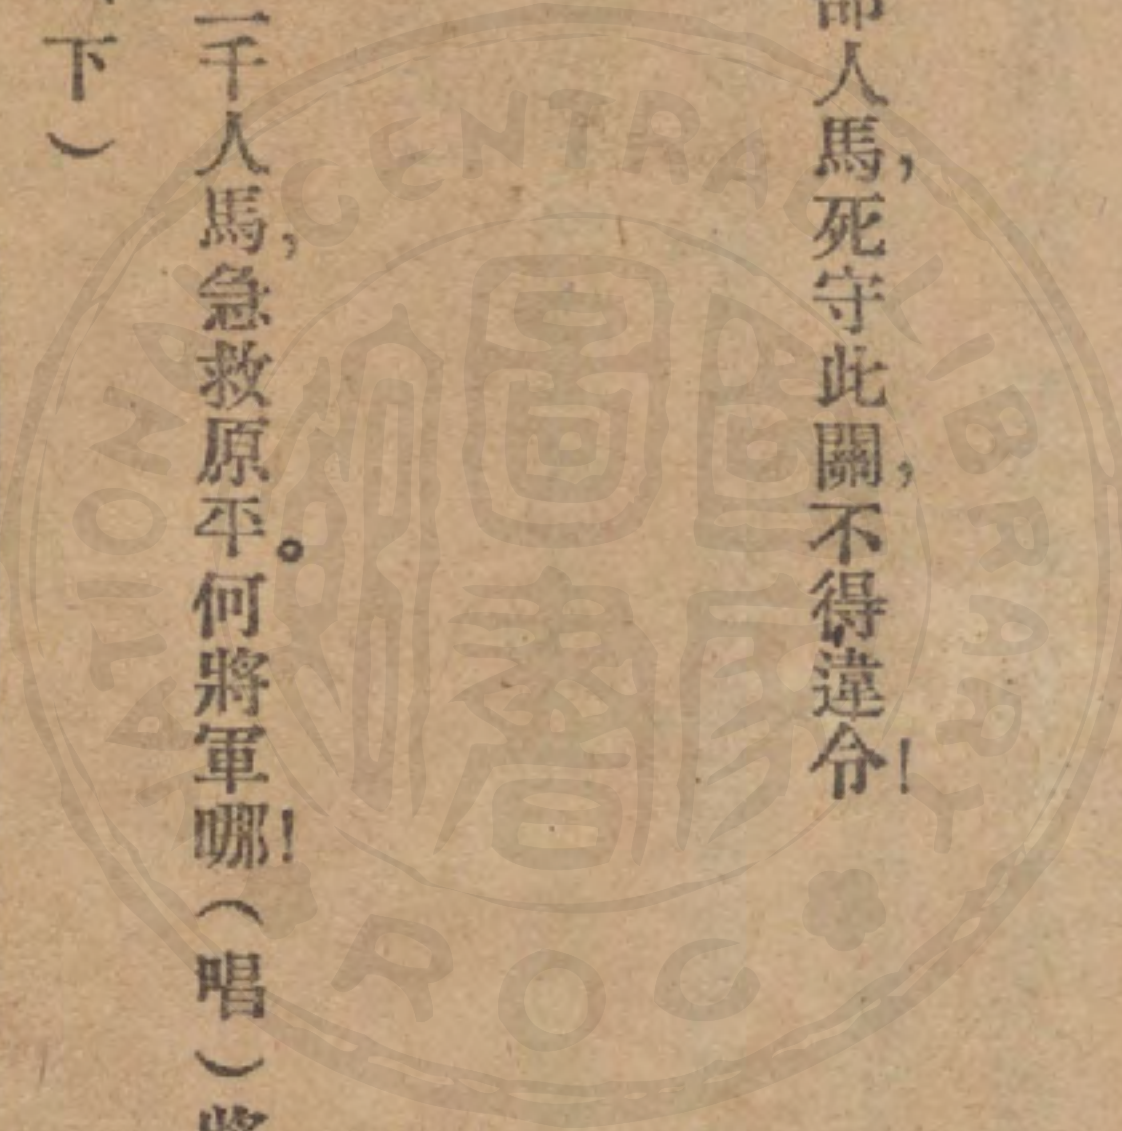 部人馬，死守此關，不得違令！
千人馬，急救原平。何將軍哪！（唱）將
下）
NATIONAL CENTRAL LIBRARY
ROC
國家圖書館